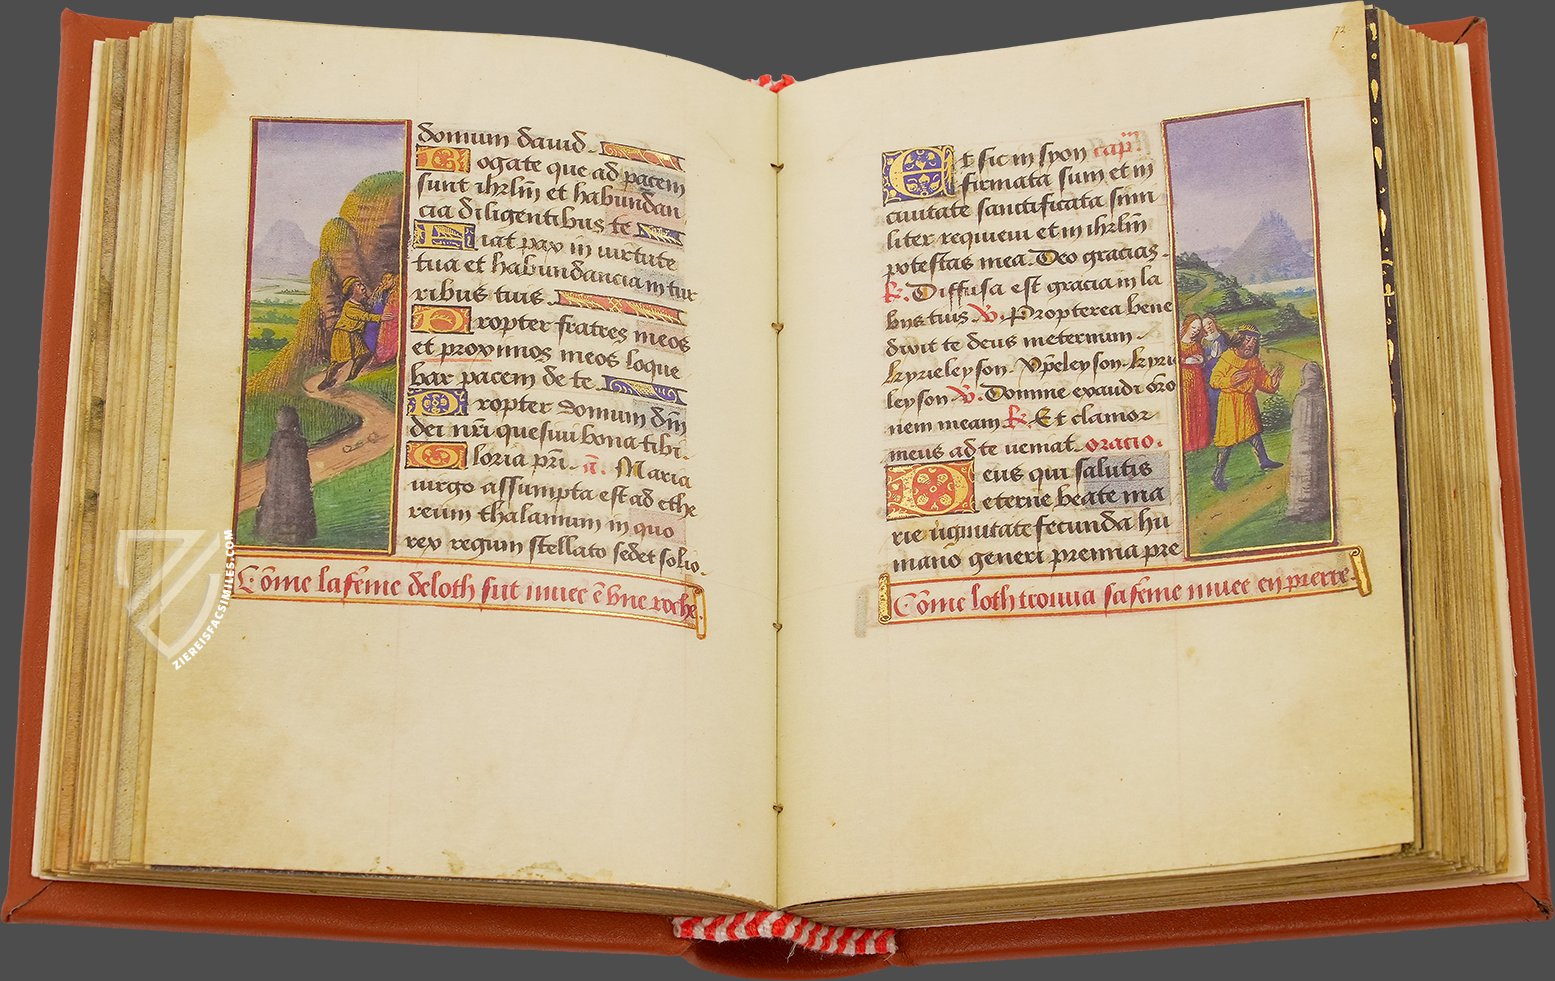 domum dauid.
Rogate que ad pacem
sunt ihrlm̄ et habundan
cia diligentibus te.
Fiat pax in uirtute
tua et habundancia in tur
ribus tuis.
Propter fratres meos
et proximos meos loque
bar pacem de te.
Propter domum dn̄i
dei nr̄i quesiui bona tibi.
Gloria pr̄i. a. Maria
uirgo assumpta est ad ethe
reum thalamum in quo
rex regum stellato sedet solio.
Cōme la fēme de loth fut muee ē vne roche.
72
Et sic in syon cap̄
firmata sum et in
ciuitate sanctificata simi
liter requieui et in ihrlm̄
potestas mea. Deo gracias.
R. Diffusa est gracia in la
biis tuis. V. Propterea bene
dixit te deus in eternum.
Kyrieleyson. Xp̄eleyson. Kyrie
leyson. V. Domine exaudi oro
nem meam. R. Et clamor
meus ad te ueniat. oracio.
Deus qui salutis
eterne beate ma
rie uirginitate fecunda hu
mano generi premia pre
Cōme loth trouua sa fēme muee en pierre.
ZIEREISFACSIMILES.COM